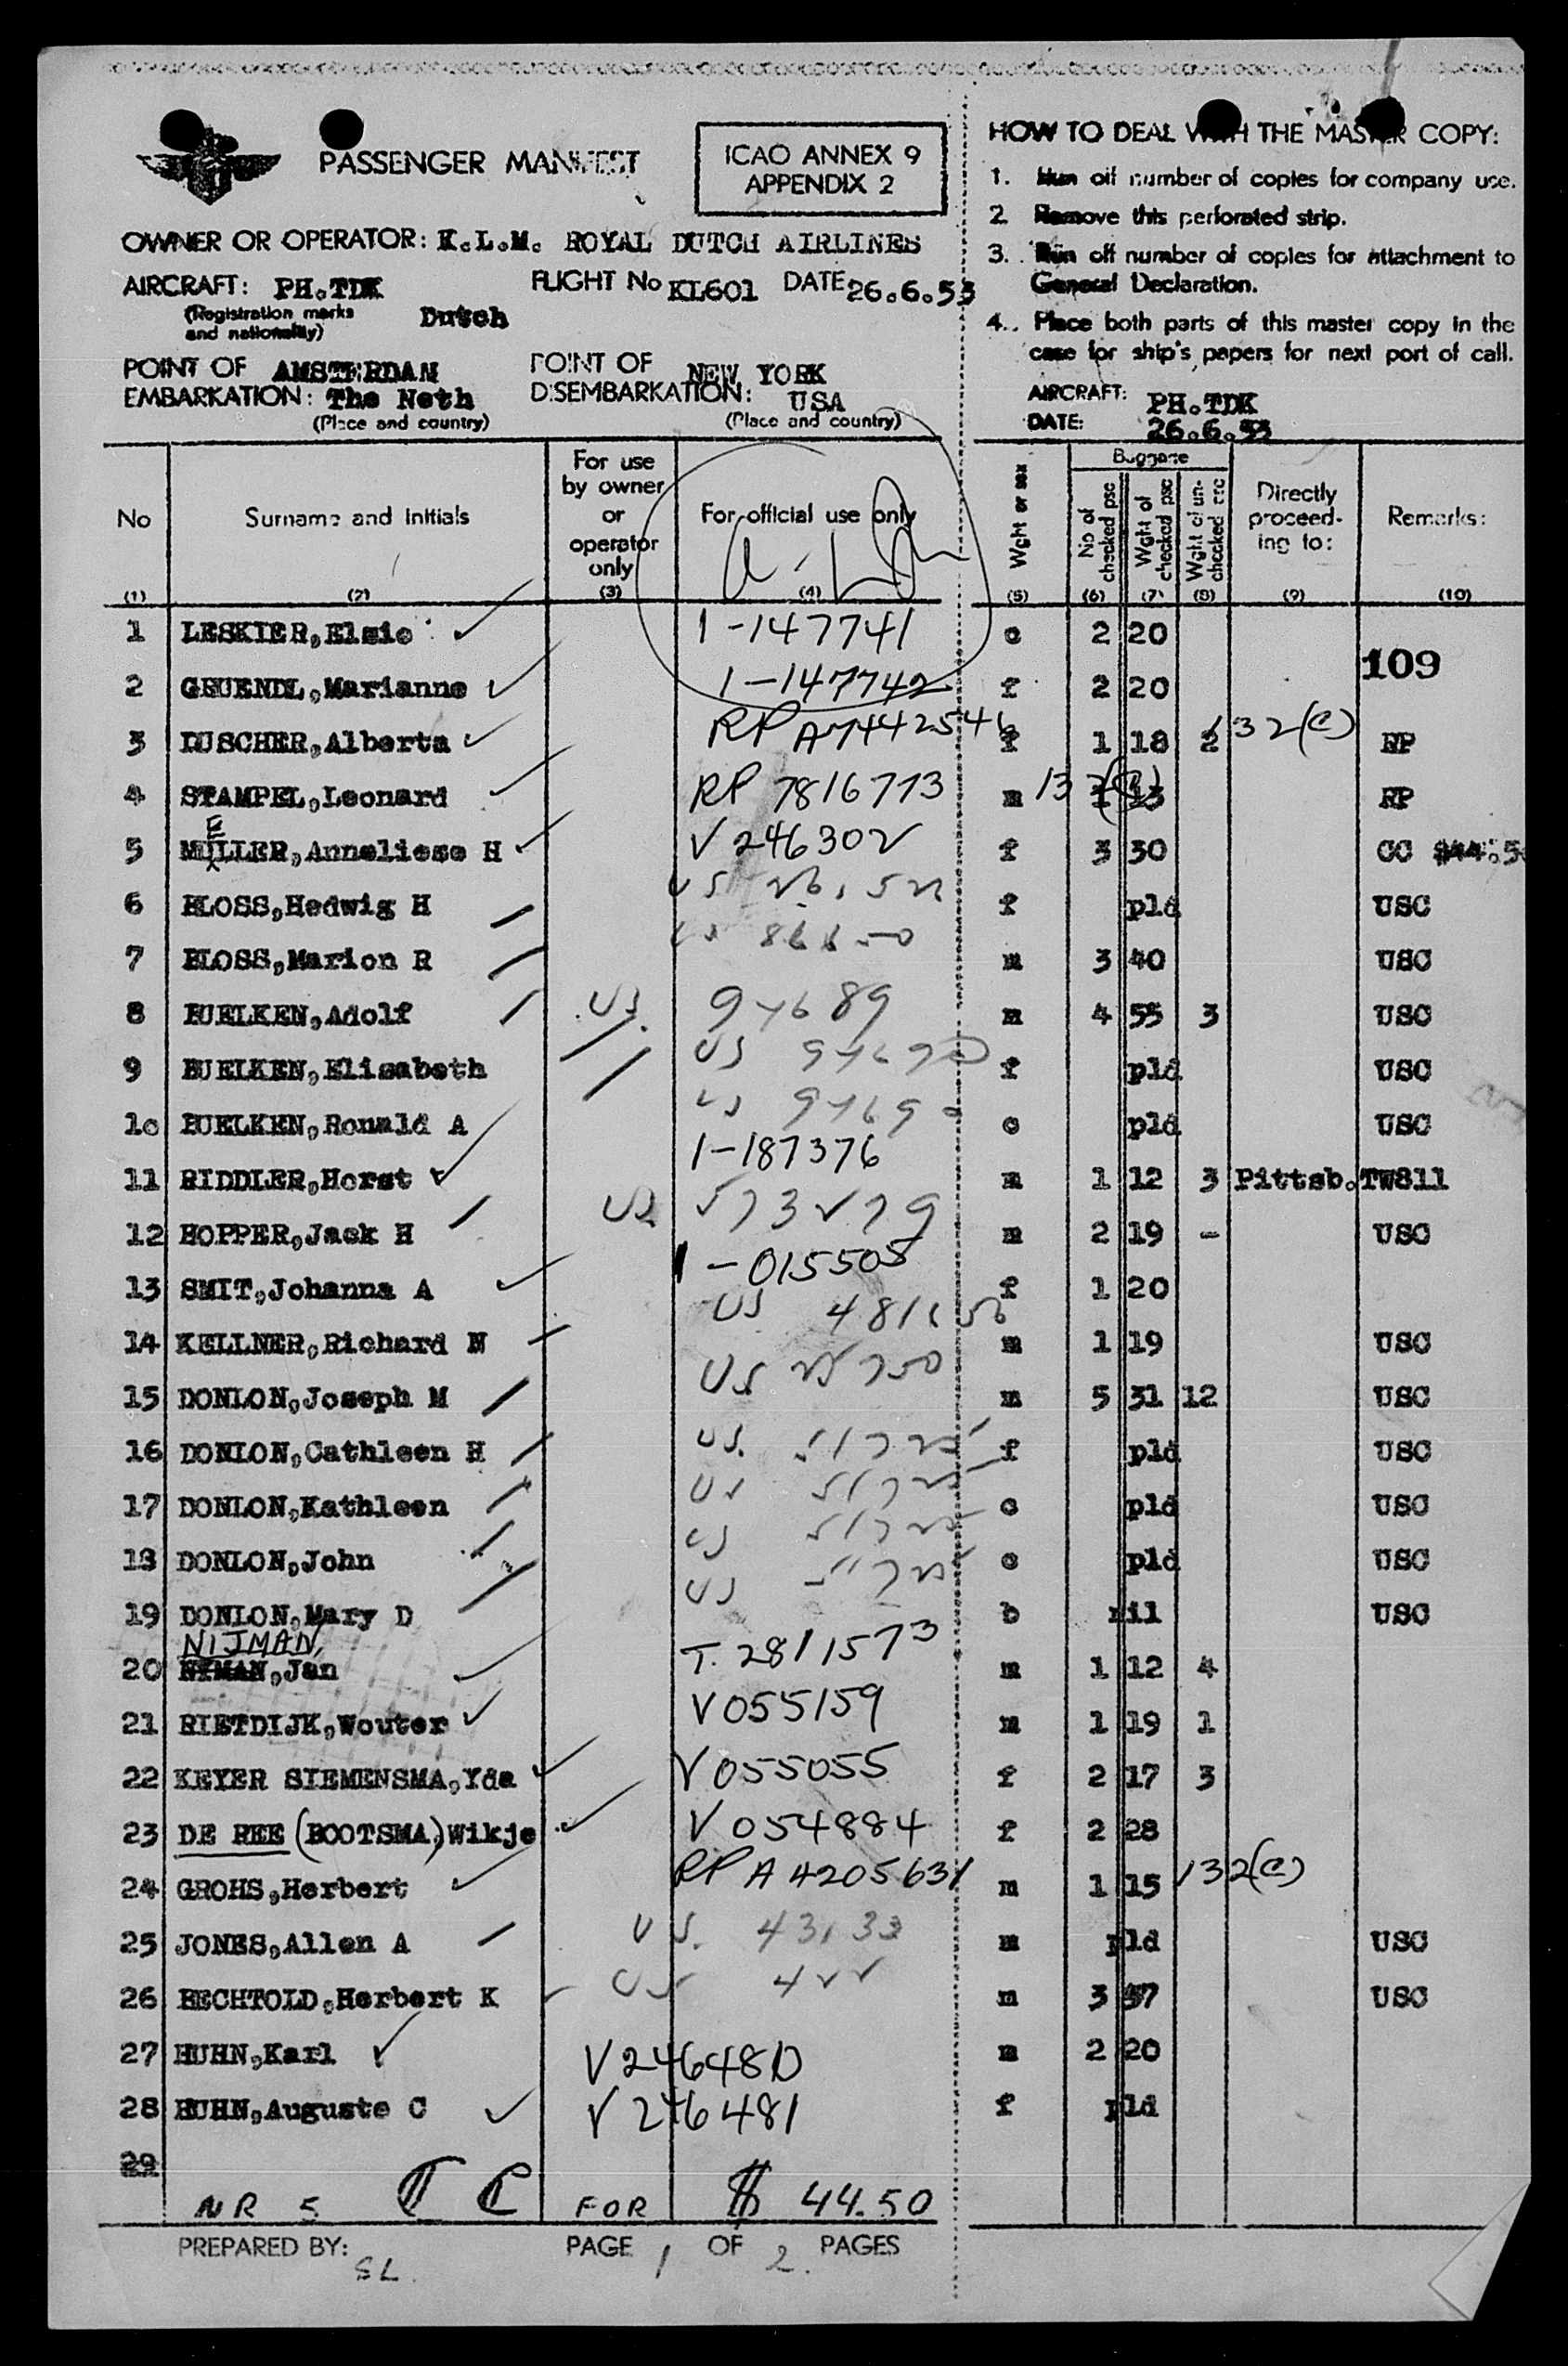 PASSENGER MANIFEST
ICAO ANNEX 9
APPENDIX 2
OWNER OR OPERATOR: K.L.M. ROYAL DUTCH AIRLINES
AIRCRAFT: PH.TDK FLIGHT No KL601 DATE 26.6.53
(Registration marks and nationality) Dutch
POINT OF EMBARKATION: AMSTERDAM The Neth
(Place and country)
POINT OF DISEMBARKATION: NEW YORK USA
(Place and country)
HOW TO DEAL WITH THE MASTER COPY:
1. Run off number of copies for company use.
2 Remove this perforated strip.
3. Run off number of copies for attachment to
General Declaration.
4. Place both parts of this master copy in the
case for ship's papers for next port of call.
AIRCRAFT: PH.TDK
DATE: 26.6.53
No (1) Surname and Initials (2) For use by owner or operator only (3) For official use only (4) Wght or sex (5) Baggage No of checked psc (6) Wght of checked psc (7) Wght of un-checked psc (8) Directly proceed-ing to: (9) Remarks: (10)
1 LESKIER,Elsie 1-147741 c 2 20
109
2 GRUENDL,Marianne 1-147742 f 2 20
3 DUSCHER,Alberta RP A7442546 f 1 18 2 132(c) RP
4 STAMPEL,Leonard RP 7816773 m RP
5 MUELLER,Anneliese H V 246302 f 3 30 CC $44.5
6 BLOSS,Hedwig H US f pld USC
7 BLOSS,Marion R m 3 40 USC
8 BUELKEN,Adolf US. 94689 m 4 55 3 USC
9 BUELKEN,Elisabeth US 94690 f pld USC
1o BUELKEN,Ronald A US c pld USC
11 RIDDLER,Horst 1-187376 m 1 12 3 Pittsb.TW811
12 HOPPER,Jack H US m 2 19 - USC
13 SMIT,Johanna A 1-015505 f 1 20
14 KELLNER,Richard N US m 1 19 USC
15 DONLON,Joseph M US m 5 31 12 USC
16 DONLON,Cathleen H US. f pld USC
17 DONLON,Kathleen US c pld USC
18 DONLON,John US c pld USC
19 DONLON,Mary D US b nil USC
NIJMAN,
20 NYMAN,Jan T. 2811573 m 1 12 4
21 RIETDIJK,Wouter V 055159 m 1 19 1
22 KEYER SIEMENSMA,Yda V 055055 f 2 17 3
23 DE REE (BOOTSMA)Wikje V 054884 f 2 28
24 GROHS,Herbert RP A 4205631 m 1 15 132(c)
25 JONES,Allen A US. m pld USC
26 BECHTOLD,Herbert K US m 3 37 USC
27 HUHN,Karl V 246480 m 2 20
28 HUHN,Auguste C V 246481 f pld
29
NR 5 CC FOR $ 44.50
PREPARED BY: SL. PAGE 1 OF 2. PAGES